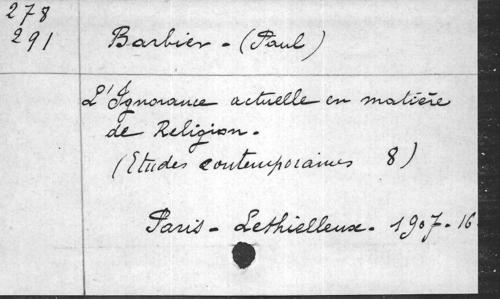 278
291
Barbier - (Paul)
L'Ignorance actuelle en matière
de Religion.
(Etudes contemporaines 8)
Paris - Lethielleux. 1907. 16